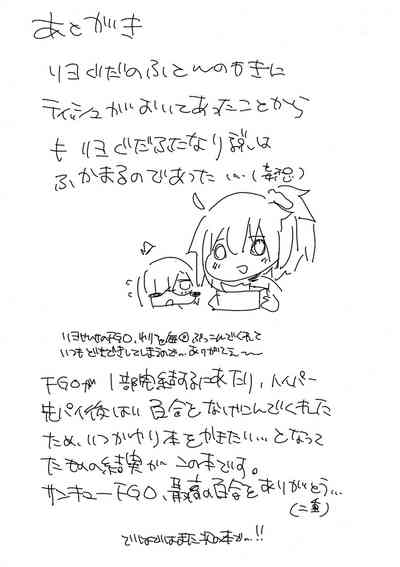 あとがき
リヨぐだのふとんのわきに
ティッシュがおいてあったことから
も リヨぐだふたなり説は
ふかまるのであった…(妄想)
いつもどきどきしてしまうので…ありがてえ〜〜
FGOが1部完結するにあたり、ハイパー
先パイ後はい百合をなげこんでくれた
ため、いつかゆり本をかきたい…となって
たものの結実がこの本です。
サンキューFGO、最高の百合をありがとう…
(二重)
ではではまた次の本で…!!